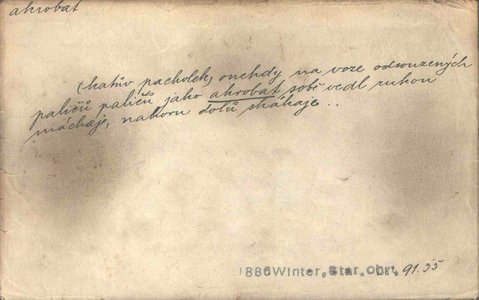 akrobat
(katův pacholek) onehdy na voze odsouzených
paličů paličů jako akrobat sobě vedl rukou
máchaje, nahoru dolů skákaje..
1886 Winter, Star. obr. 91.35